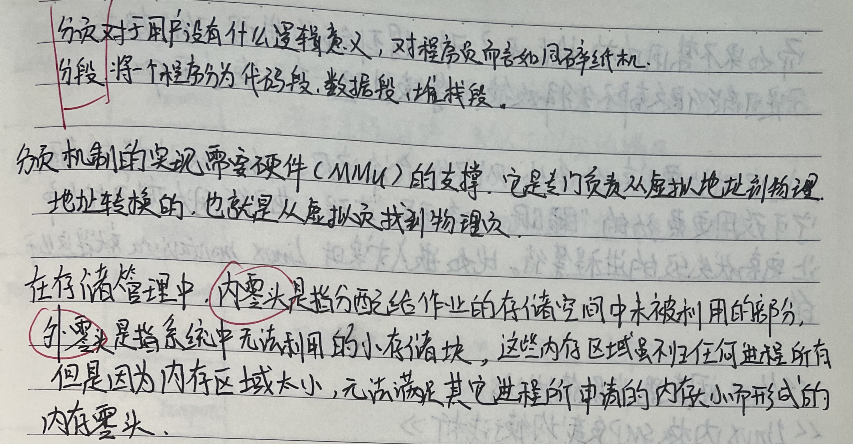 分页对于用户没有什么逻辑意义，对程序员而言如同碎纸机.
分段 将一个程序分为代码段.数据段，堆栈段。
分页机制的实现需要硬件(MMU)的支撑.它是专门负责从虚拟地址到物理.
地址转换的.也就是从虚拟页找到物理页.
在存储管理中.内零头是指分配给作业的存储空间中未被利用的部分.
外零头是指系统中无法利用的小存储块，这些内存区域虽不归任何进程所有
但是因为内存区域太小，无法满足其它进程所申请的内存大小而形成的
内存零头.